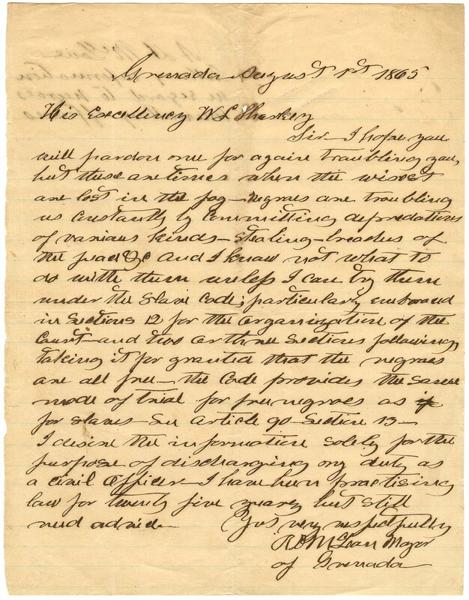 Grenada August 1st 1865
His Excellency W L Sharkey
Sir I hope you
will pardon me for again troubling you,
but these are times when the wisest
are lost in the fog — negroes are troubling
us constantly by committing depredations
of various kinds — stealing — breaches of
the peace &c and I know not what to
do with them unless I can try them
under the Slave Code; particularly embraced
in Sections 12 for the organization of the
Court — and two or three Sections following
taking it for granted that the negroes
are all free — the Code provides the same
mode of trial for free negroes as
for slaves — See Article 90 — Section 13 —
I desire the information solely for the
purpose of discharging my duty as
a civil officer — I have been practising
law for twenty five years but still
need advice — Yos very respectfully
McLean Mayor
of Grenada